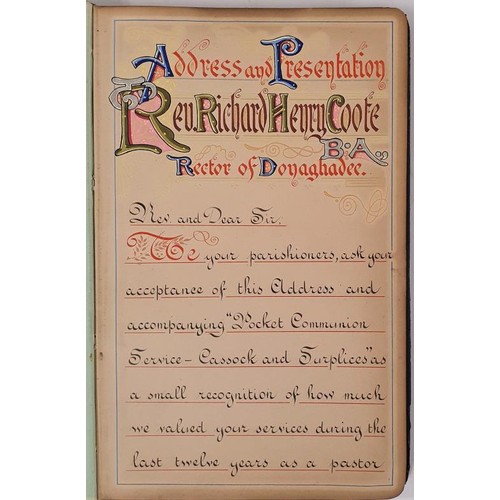 Address and Presentation
To
Rev. Richard Henry Coote
B.A.,
Rector of Donaghadee.
Rev and Dear Sir.
We your parishioners, ask your
acceptance of this Address and
accompanying "Pocket Communion
Service - Cassock and Surplices" as
a small recognition of how much
we valued your services during the
last twelve years as a pastor